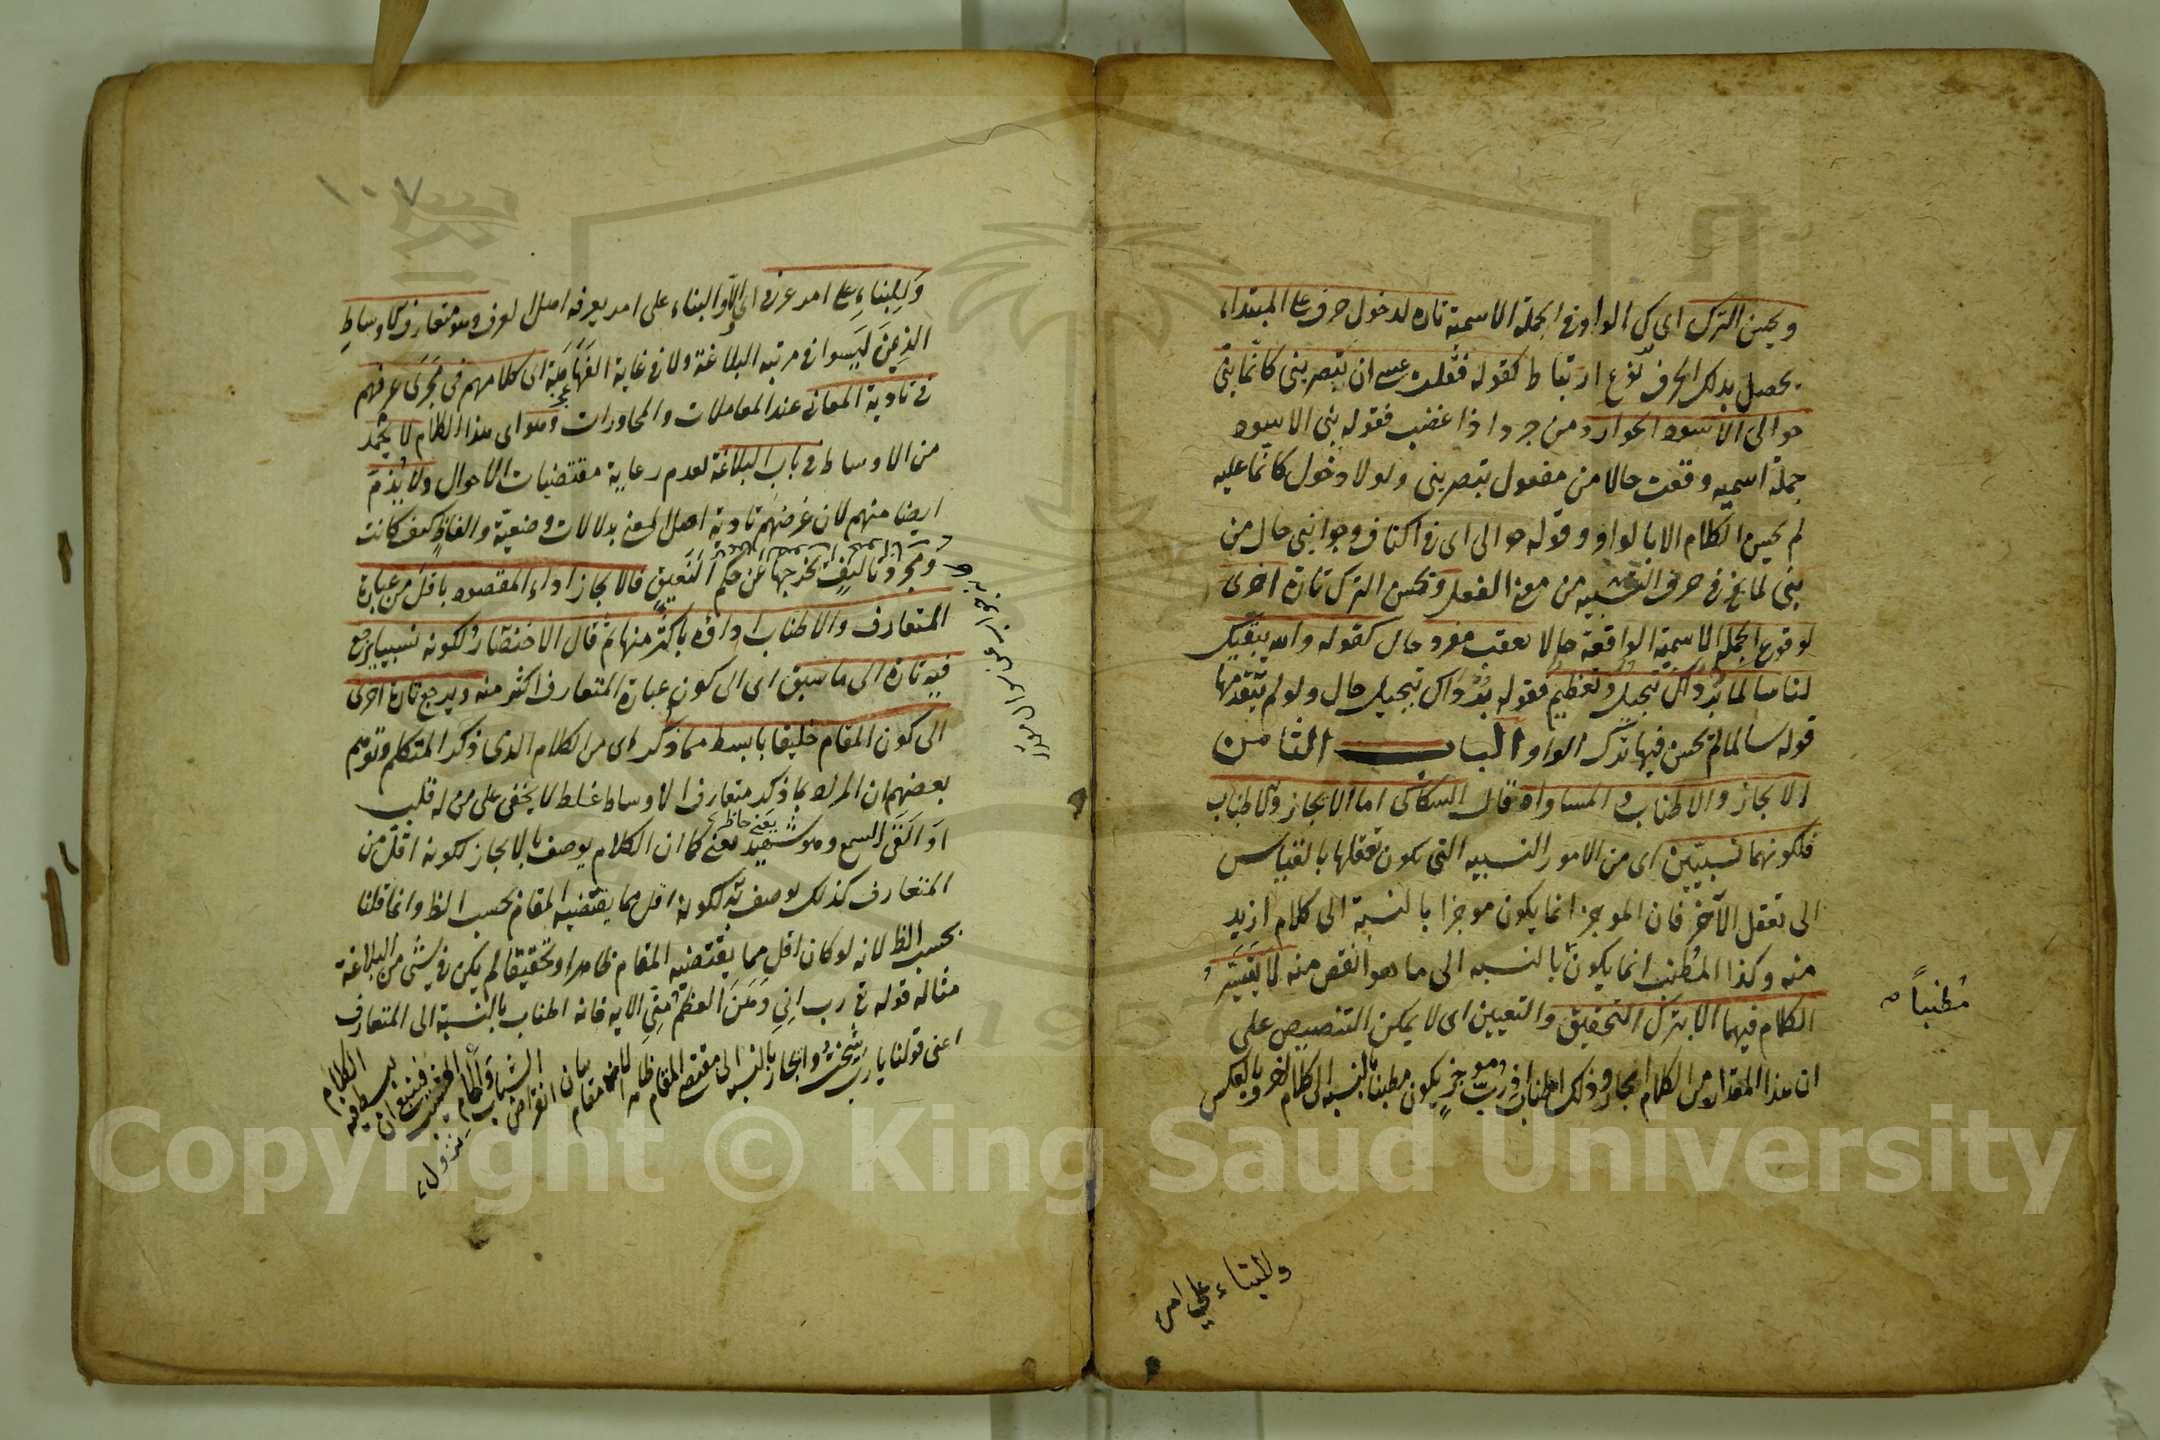 ويحسن الترك اى ترك الواو في الجملة الاسمية تارة لدخول حرف على المبتداء
يحصل بذلك الحرف نوع ارتباط كقوله فقلت عسى ان تبصرينى كانما بنى
حوالى الاسود الحوارد من حرد اذا غضب فقوله بنى الاسود
جملة اسميه وقعت حالا من مفعول تبصرينى ولولا دخول كانما عليه
لم يحسن الكلام الا بالواو وقوله حوالى اى في اكنافى وجوانبى حال من
بنى لما في حرف التشبيه من معنى الفعل ويحسن الترك تارة اخرى
لوقوع الجملة الاسمية الواقعة حالا بعقب مفرد حال كقوله والله يبقيك
لنا سالما برداك تبجيل وتعظيم فقوله برداك تبجيل حال ولو لم يتقدمها
قوله سالما لم يحسن فيها ترك الواو الباب الثامن
الايجاز والاطناب والمساواة قال السكاكى اما الايجاز والاطناب
فلكونهما نسبيين اى من الامور النسبيه التى يكون تعقلها بالقياس
الى تعقل الآخر فان الموجز انما يكون موجزا بالنسبة الى كلام ازيد
منه وكذا المطنب انما يكون بالنسبه الى ما هو انقص منه لا يتيسر
مطنبا
الكلام فيهما الا بترك التحقيق والتعيين اى لا يمكن التنصيص على
ان هذا المقدار من الكلام ايجاز وذلك اطناب اذ رب موجز يكون مطنبا بالنسبه الى كلام اخر وبالعكس
وللبناء على امر
١٠٧
وللبناء على امر عرفى اى والا بالبناء على امر يعرفه اهل العرف وهو متعارف الاوساط
الذين ليسوا في مرتبه البلاغة ولا في غاية الفهاهة اى كلامهم في مجرى عرفهم
في تادية المعانى عند المعاملات والمحاورات وهو اى هذا الكلام لا يحمد
من الاوساط في باب البلاغة لعدم رعاية مقتضيات الاحوال ولا يذم
ايضا منهم لان غرضهم تادية اصل المعنى بدلالات وضعية والفاظ كيف كانت
ومجرد تاليف يخرجها عن حكم النعيق فالايجاز اداء المقصود باقل من عبارة
المتعارف والاطناب اداؤه باكثر منها ثم قال الاختصار لكونه نسبيا يرجع
فيه تارة الى ما سبق اى الى كون عبارة المتعارف اكثر منه ويرجع تارة اخرى
الى كون المقام خليقا بابسط مما ذكر اى من الكلام الذى ذكره المتكلم وتوهم
بعضهم ان المراد بما ذكر متعارف الاوساط غلط لا يخفى على من له قلب
او القى السمع وهو شهيد يعنى كما ان الكلام يوصف بالايجاز لكونه اقل من
يعنى حاضر
المتعارف كذلك يوصف به لكونه اقل مما يقتضيه المقام بحسب الظ وانما قلنا
بحسب الظ لانه لو كان اقل مما يقتضيه المقام ظاهرا وتحقيقا لم يكن في شئ من البلاغة
مثاله قوله تع رب انى وهن العظم منى الايه فانه اطناب بالنسبة الى المتعارف
اعنى قولنا يا رب شخت وايجاز بالنسبه الى مقتضى المقام ظا لانه مقام بيان انقراض الشباب والمام المشيب فينبغى ان يبسط فيه الكلام